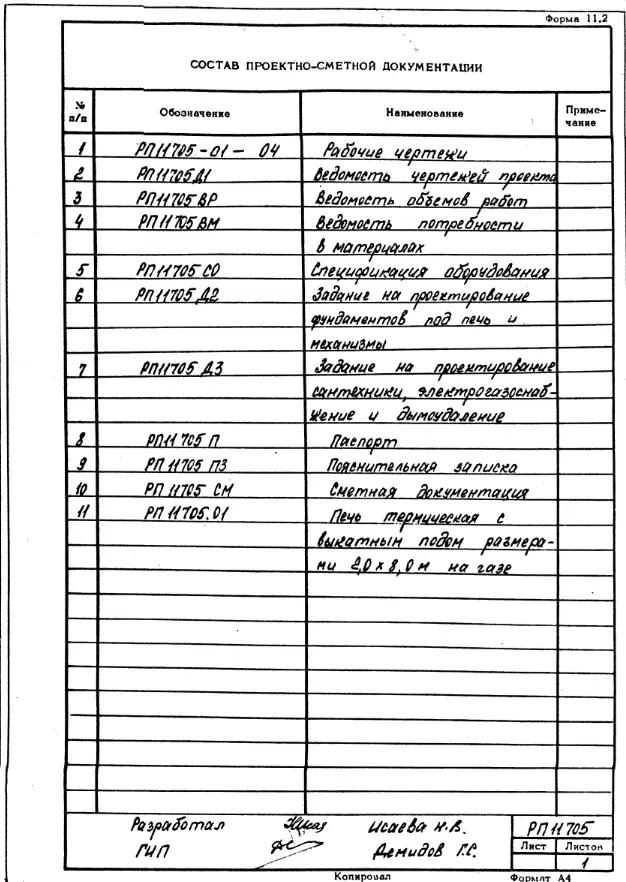 Форма 11.2
СОСТАВ ПРОЕКТНО-СМЕТНОЙ ДОКУМЕНТАЦИИ
№ п/п Обозначение Наименование Приме-
чание
1 РП11705-01-04 Рабочие чертежи
2 РП11705Д1 Ведомость чертежей проекта
3 РП11705ВР Ведомость объемов работ
4 РП11705ВМ Ведомость потребности
в материалах
5 РП11705СО Спецификация оборудования
6 РП11705Д2 Задание на проектирование
фундаментов под печь и
механизмы
7 РП11705Д3 Задание на проектирование
сантехники, электрогазоснаб-
жение и дымоудаление
8 РП11705 П Паспорт
9 РП11705 ПЗ Пояснительная записка
10 РП11705 СМ Сметная документация
11 РП11705.01 Печь термическая с
выкатным подом размера-
ми 2,0 х 8,0 м на газе
Разработал Исаева Н.В. РП11705
ГИП Демидов Г.С. Лист Листов
1
Копировал Формат А4